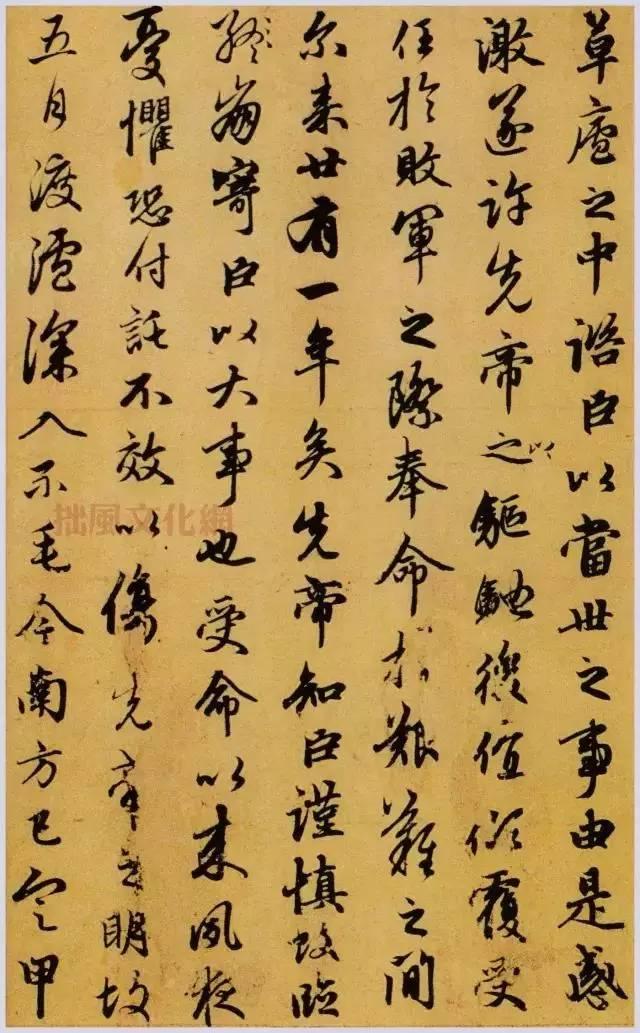 草廬之中諮臣以當世之事由是感
激遂許先帝之以驅馳後值傾覆受
任於敗軍之際奉命於艱難之間
尔来廿有一年矣先帝知臣謹慎故臨
終崩寄臣以大事也受命以来夙夜
憂懼恐付託不效以傷先帝之明故
五月渡瀘深入不毛今南方已定甲
拙風文化網